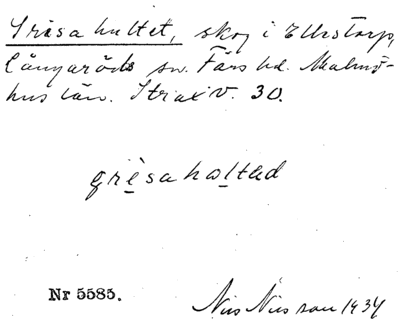 Grisahultet, skog i Ellestorp,
Långaröds sn. Färs hd. Malmö-
hus län. Strax v. 30.
grìsaholtad
Nr 5585.
Nils Nilsson 1934